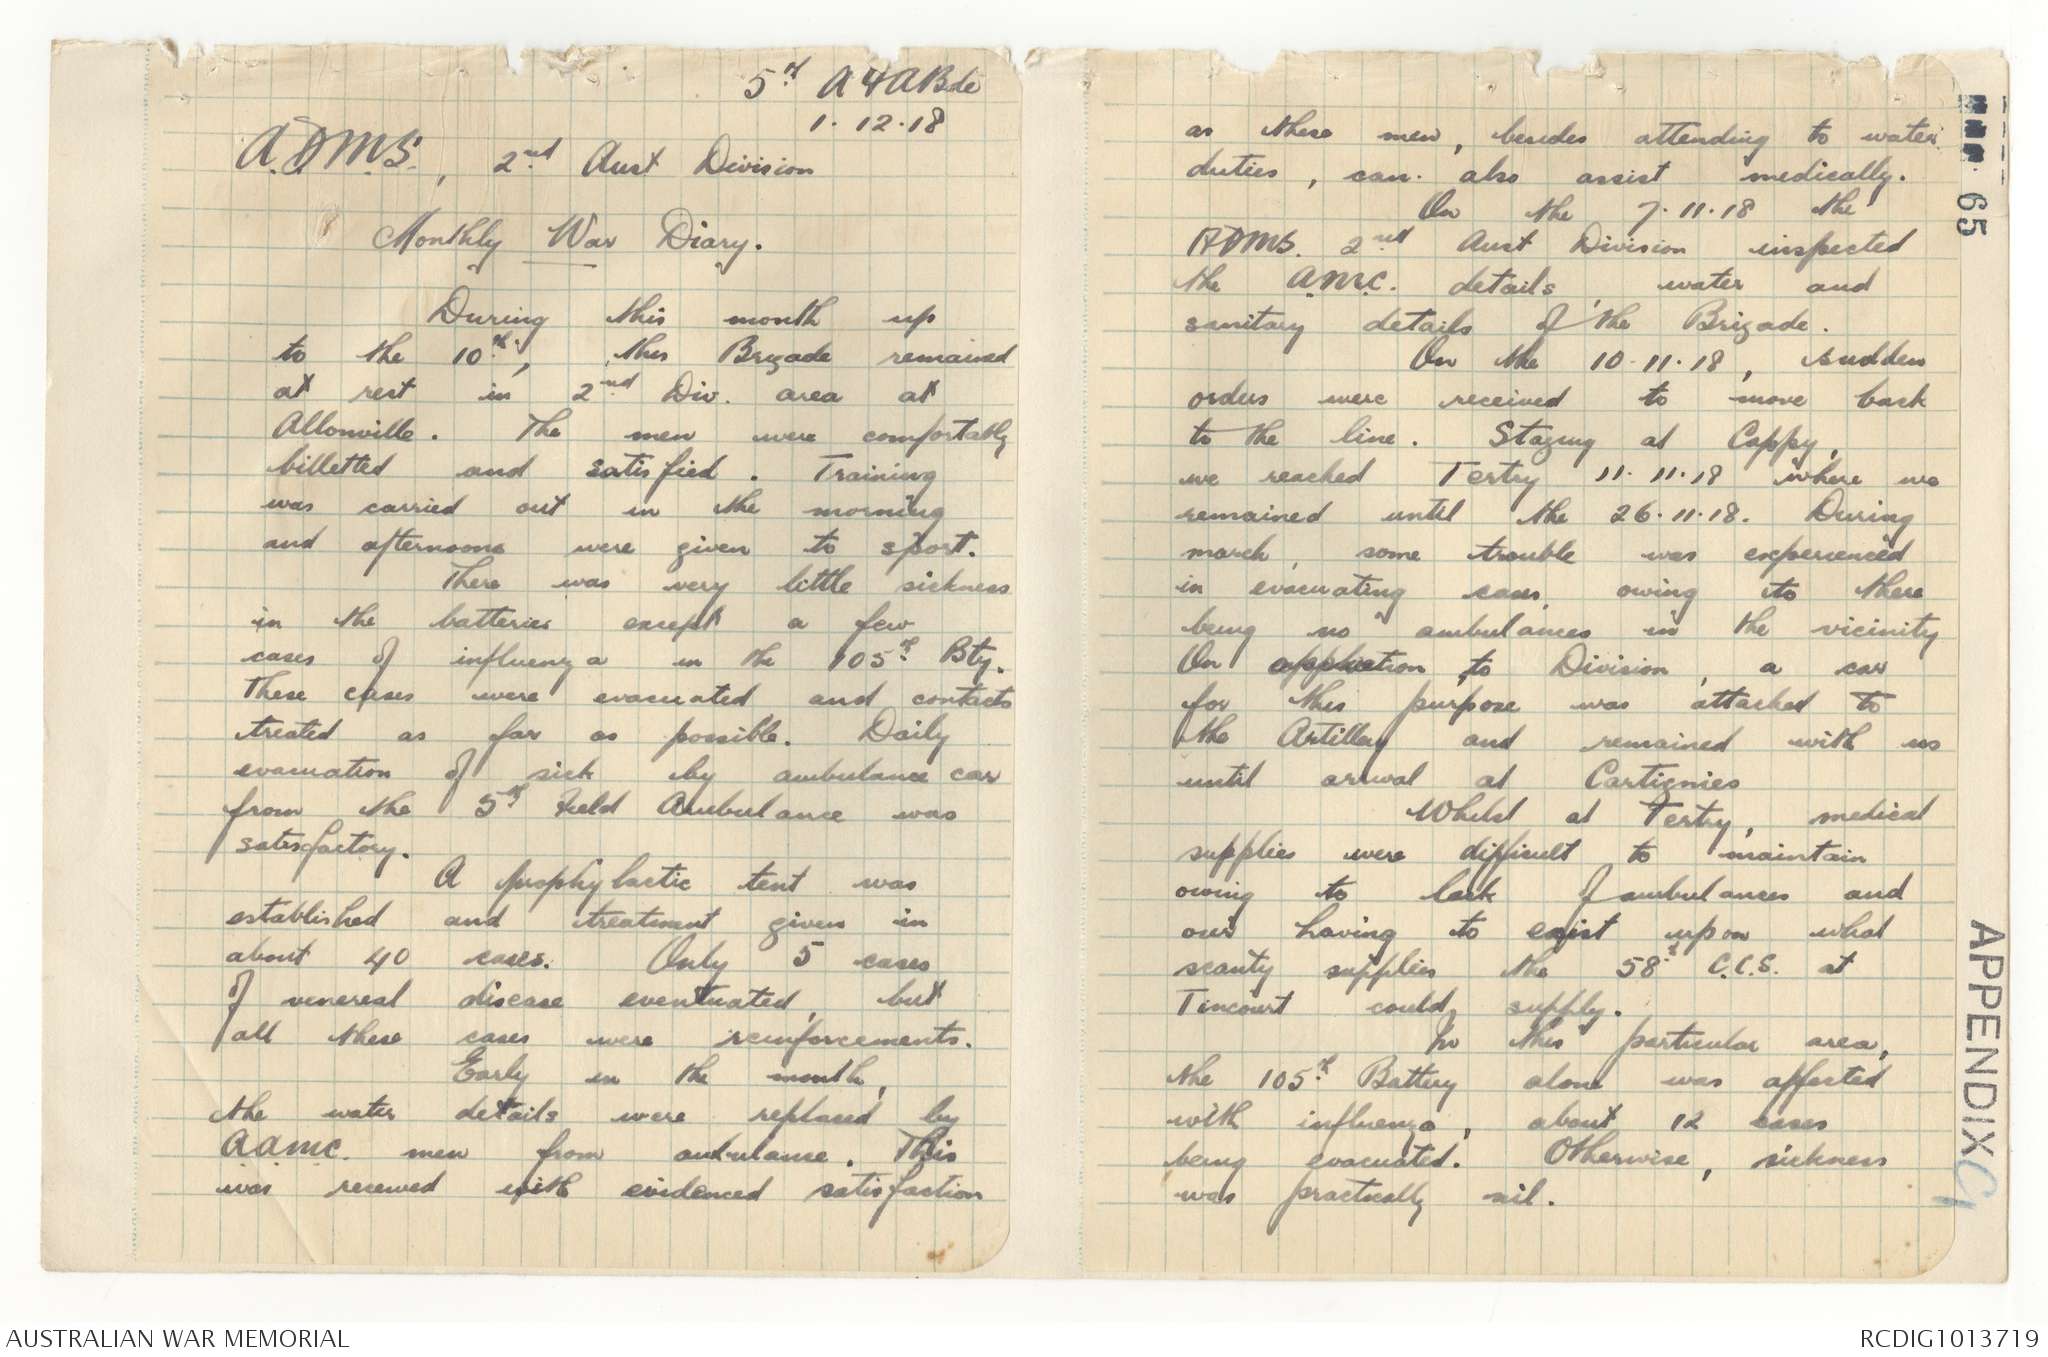 5th A F A Bde
1.12.18
A.D.M.S., 2nd Aust Division
Monthly War Diary.
During this month up
to the 10th, this Brigade remained
at rest in 2nd Div. area at
Allonville. The men were comfortably
billetted and satisfied. Training
was carried out in the morning
and afternoons were given to sport.
There was very little sickness
in the batteries except a few
cases of influenza in the 105th Bty.
These cases were evacuated and contacts
treated as far as possible. Daily
evacuation of sick by ambulance car
from the 5th Field Ambulance was
satisfactory.
A prophylactic tent was
established and treatment given in
about 40 cases. Only 5 cases
of venereal disease eventuated, but
all these cases were reinforcements.
Early in the month,
the water details were replaced by
A.A.M.C. men from ambulance. This
was received with evidenced satisfaction
as these men, besides attending to water
duties, can also assist medically.
On the 7.11.18 the
A.D.M.S. 2nd Aust Division inspected
the A.M.C. details, water and
sanitary details of the Brigade.
On the 10.11.18, sudden
orders were received to move back
to the line. Staging at Cappy,
we reached Tertry 11.11.18 where we
remained until the 26.11.18. During
march, some trouble was experienced
in evacuating cases, owing to there
being no ambulances in the vicinity
On application to Division, a car
for this purpose was attached to
the Artillery and remained with us
until arrival at Cartignies
Whilst at Tertry, medical
supplies were difficult to maintain
owing to lack of ambulances and
our having to exist upon what
scanty supplies the 58th C.C.S. at
Tincourt could supply.
In this particular area,
the 105th Battery alone was affected
with influenza, about 12 cases
being evacuated. Otherwise, sickness
was practically nil.
65
APPENDIX
AUSTRALIAN WAR MEMORIAL
RCDIG1013719